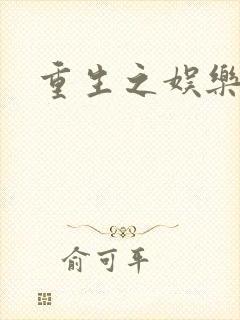 重生之娛樂
俞可平